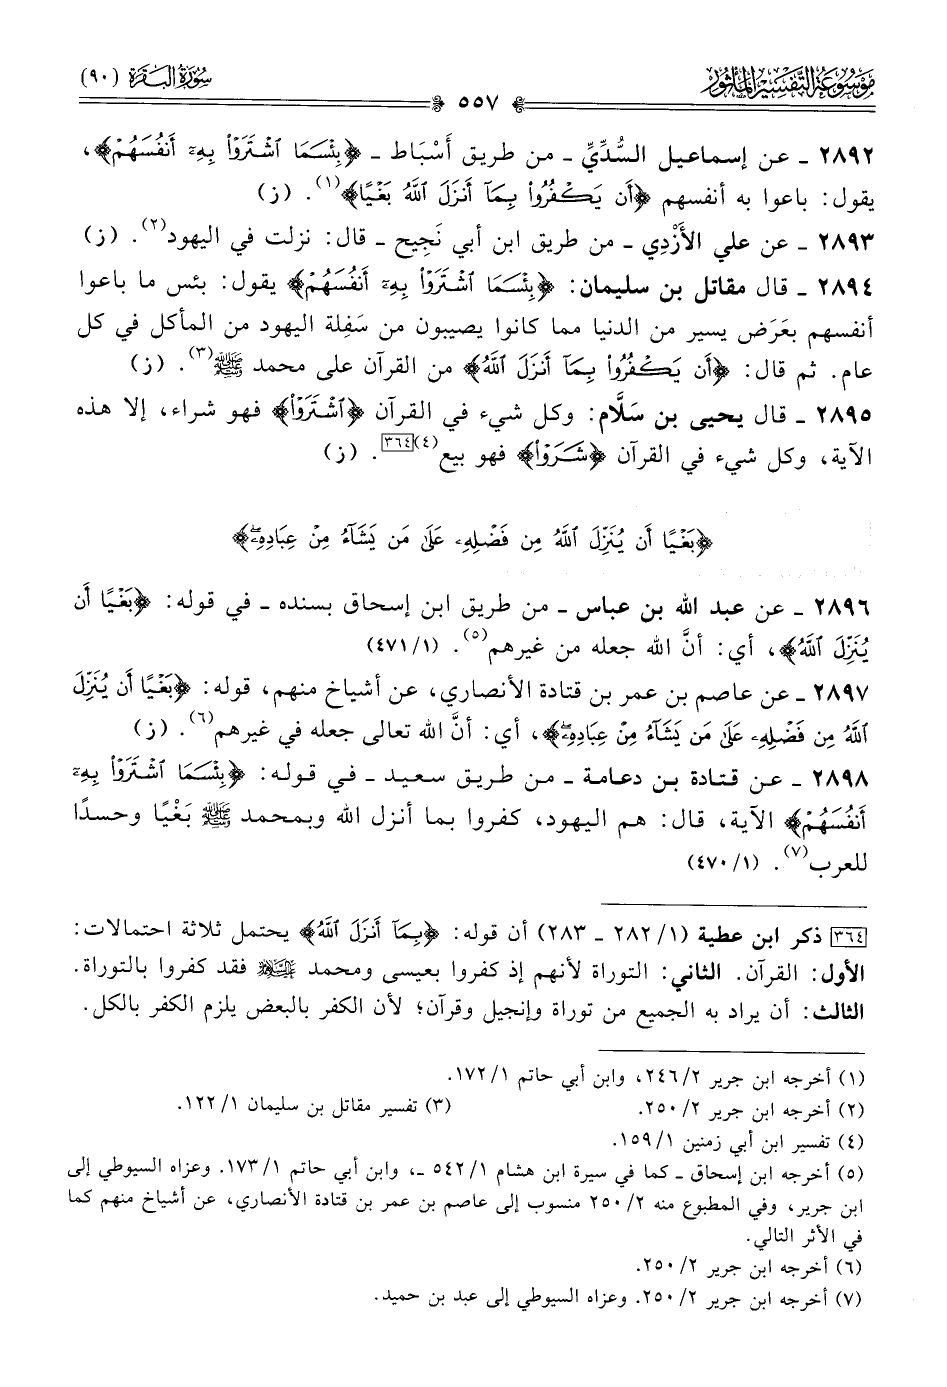 مَوْسُوعَةُ التَّفْسِيرِ المَأْثُور
سُورَةُ البَقَرَة (٩٠)
٥٥٧
٢٨٩٢ ـ عن إسماعيل السُّدِّيِّ ـ من طريق أَسْبَاط ـ ﴿بِئْسَمَا ٱشْتَرَوْا۟ بِهِۦٓ أَنفُسَهُمْ﴾،
يقول: باعوا به أنفسهم ﴿أَن يَكْفُرُوا۟ بِمَآ أَنزَلَ ٱللَّهُ بَغْيًا﴾(١). (ز)
٢٨٩٣ ـ عن علي الأَزْدِي ـ من طريق ابن أبي نَجِيح ـ قال: نزلت في اليهود(٢). (ز)
٢٨٩٤ ـ قال مقاتل بن سليمان: ﴿بِئْسَمَا ٱشْتَرَوْا۟ بِهِۦٓ أَنفُسَهُمْ﴾ يقول: بئس ما باعوا
أنفسهم بعَرَض يسير من الدنيا مما كانوا يصيبون من سَفِلة اليهود من المأكل في كل
عام. ثم قال: ﴿أَن يَكْفُرُوا۟ بِمَآ أَنزَلَ ٱللَّهُ﴾ من القرآن على محمد ﷺ(٣). (ز)
٢٨٩٥ ـ قال يحيى بن سَلَّام: وكل شيء في القرآن ﴿ٱشْتَرَوُا۟﴾ فهو شراء، إلا هذه
الآية، وكل شيء في القرآن ﴿شَرَوْا۟﴾ فهو بيع(٤)[٣٦٤]. (ز)
﴿بَغْيًا أَن يُنَزِّلَ ٱللَّهُ مِن فَضْلِهِۦ عَلَىٰ مَن يَشَآءُ مِنْ عِبَادِهِۦ﴾
٢٨٩٦ ـ عن عبد الله بن عباس ـ من طريق ابن إسحاق بسنده ـ في قوله: ﴿بَغْيًا أَن
يُنَزِّلَ ٱللَّهُ﴾، أي: أنَّ الله جعله من غيرهم(٥). (٤٧١/١)
٢٨٩٧ ـ عن عاصم بن عمر بن قتادة الأنصاري، عن أشياخ منهم، قوله: ﴿بَغْيًا أَن يُنَزِّلَ
ٱللَّهُ مِن فَضْلِهِۦ عَلَىٰ مَن يَشَآءُ مِنْ عِبَادِهِۦ﴾، أي: أنَّ الله تعالى جعله في غيرهم(٦). (ز)
٢٨٩٨ ـ عن قتادة بن دعامة ـ من طريق سعيد ـ في قوله: ﴿بِئْسَمَا ٱشْتَرَوْا۟ بِهِۦٓ
أَنفُسَهُمْ﴾ الآية، قال: هم اليهود، كفروا بما أنزل الله وبمحمد ﷺ بَغْيًا وحسدًا
للعرب(٧). (٤٧٠/١)
[٣٦٤] ذكر ابن عطية (١/ ٢٨٢ ـ ٢٨٣) أن قوله: ﴿بِمَآ أَنزَلَ ٱللَّهُ﴾ يحتمل ثلاثة احتمالات:
الأول: القرآن. الثاني: التوراة لأنهم إذ كفروا بعيسى ومحمد ﷺ فقد كفروا بالتوراة.
الثالث: أن يراد به الجميع من توراة وإنجيل وقرآن؛ لأن الكفر بالبعض يلزم الكفر بالكل.
(١) أخرجه ابن جرير ٢/ ٢٤٦، وابن أبي حاتم ١/ ١٧٢.
(٢) أخرجه ابن جرير ٢/ ٢٥٠. (٣) تفسير مقاتل بن سليمان ١/ ١٢٢.
(٤) تفسير ابن أبي زمنين ١/ ١٥٩.
(٥) أخرجه ابن إسحاق ـ كما في سيرة ابن هشام ١/ ٥٤٢ ـ، وابن أبي حاتم ١/ ١٧٣. وعزاه السيوطي إلى
ابن جرير، وفي المطبوع منه ٢/ ٢٥٠ منسوب إلى عاصم بن عمر بن قتادة الأنصاري، عن أشياخ منهم كما
في الأثر التالي.
(٦) أخرجه ابن جرير ٢/ ٢٥٠.
(٧) أخرجه ابن جرير ٢/ ٢٥٠. وعزاه السيوطي إلى عبد بن حميد.